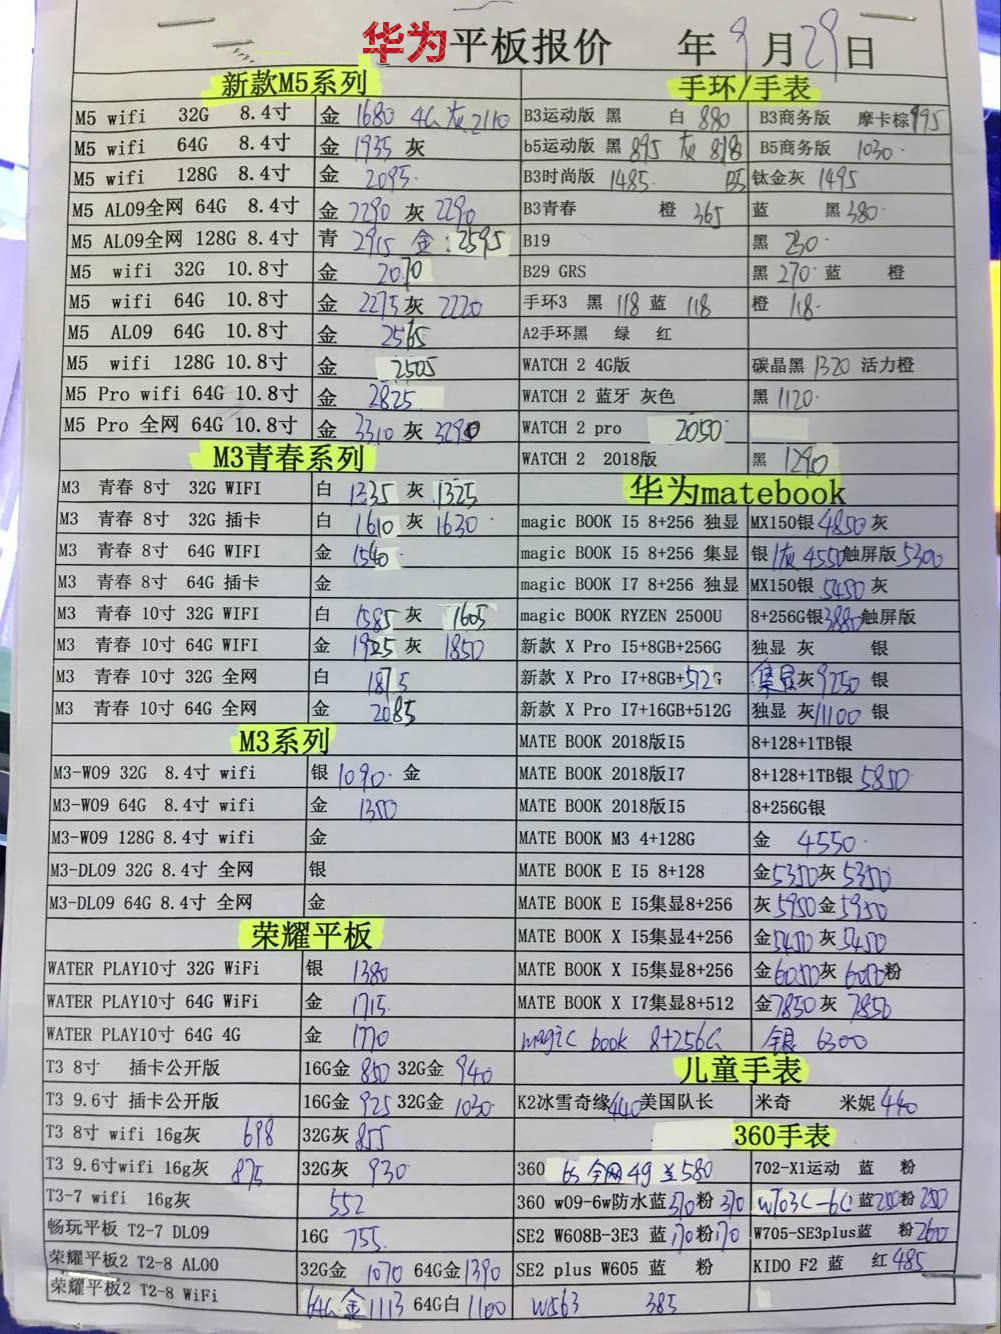 华为平板报价 年 9月29日
新款M5系列
M5 wifi 32G 8.4寸 金 1680 4G灰2110
M5 wifi 64G 8.4寸 金 1935 灰
M5 wifi 128G 8.4寸 金 2095
M5 AL09全网 64G 8.4寸 金 2290 灰 2290
M5 AL09全网 128G 8.4寸 青 2915 金:2595
M5 wifi 32G 10.8寸 金 2070
M5 wifi 64G 10.8寸 金 2275 灰 2220
M5 AL09 64G 10.8寸 金 2565
M5 wifi 128G 10.8寸 金 2505
M5 Pro wifi 64G 10.8寸 金 2825
M5 Pro 全网 64G 10.8寸 金 3310 灰 3290
M3青春系列
M3 青春 8寸 32G WIFI 白 1335 灰 1325
M3 青春 8寸 32G 插卡 白 1610 灰 1630
M3 青春 8寸 64G WIFI 金 1540
M3 青春 8寸 64G 插卡 金
M3 青春 10寸 32G WIFI 白 1585 灰 1605
M3 青春 10寸 64G WIFI 金 1925 灰 1850
M3 青春 10寸 32G 全网 白 1875
M3 青春 10寸 64G 全网 金 2085
M3系列
M3-W09 32G 8.4寸 wifi 银 1090 金
M3-W09 64G 8.4寸 wifi 金 1350
M3-W09 128G 8.4寸 wifi 金
M3-DL09 32G 8.4寸 全网 银
M3-DL09 64G 8.4寸 全网 金
荣耀平板
WATER PLAY10寸 32G WiFi 银 1380
WATER PLAY10寸 64G WiFi 金 1715
WATER PLAY10寸 64G 4G 金 1770
T3 8寸 插卡公开版 16G金 850 32G金 940
T3 9.6寸 插卡公开版 16G金 925 32G金 1030
T3 8寸 wifi 16g灰 698 32G灰 855
T3 9.6寸wifi 16g灰 875 32G灰 930
T3-7 wifi 16g灰 552
畅玩平板 T2-7 DL09 16G 755
荣耀平板2 T2-8 AL00 32G金 1070 64G金1390
荣耀平板2 T2-8 WiFi 64G金1113 64G白 1100
手环/手表
B3运动版 黑 白 880 B3商务版 摩卡棕995
b5运动版 黑 895 灰 898 B5商务版 1030
B3时尚版 1485 B5 钛金灰 1495
B3青春 橙 365 蓝 黑380
B19 黑 230
B29 GRS 黑 270 蓝 橙
手环3 黑 118 蓝 118 橙 118
A2手环黑 绿 红
WATCH 2 4G版 碳晶黑 1320 活力橙
WATCH 2 蓝牙 灰色 黑 1120
WATCH 2 pro 2050
WATCH 2 2018版 黑 1290
华为matebook
magic BOOK I5 8+256 独显 MX150银 4850灰
magic BOOK I5 8+256 集显 银/灰 4550触屏版5300
magic BOOK I7 8+256 独显 MX150银 5450 灰
magic BOOK RYZEN 2500U 8+256G银3880触屏版
新款 X Pro I5+8GB+256G 独显 灰 银
新款 X Pro I7+8GB+512G 集显灰9250 银
新款 X Pro I7+16GB+512G 独显 灰11100 银
MATE BOOK 2018版I5 8+128+1TB银
MATE BOOK 2018版I7 8+128+1TB银 5850
MATE BOOK 2018版I5 8+256G银
MATE BOOK M3 4+128G 金 4550
MATE BOOK E I5 8+128 金5350灰 5350
MATE BOOK E I5集显8+256 灰5950金5950
MATE BOOK X I5集显4+256 金5450灰5450
MATE BOOK X I5集显8+256 金6050灰 6050粉
MATE BOOK X I7集显8+512 金7850灰 7850
magic book 8+256G 银 6300
儿童手表
K2冰雪奇缘440美国队长 米奇 米妮 440
360手表
360 6s 全网4g 兰580 702-X1运动 蓝 粉
360 w09-6w防水蓝370粉370 W703C-6C 蓝250粉250
SE2 W608B-3E3 蓝170粉170 W705-SE3plus蓝 粉260
SE2 plus W605 蓝 粉 KIDO F2 蓝 红 485
W563 385